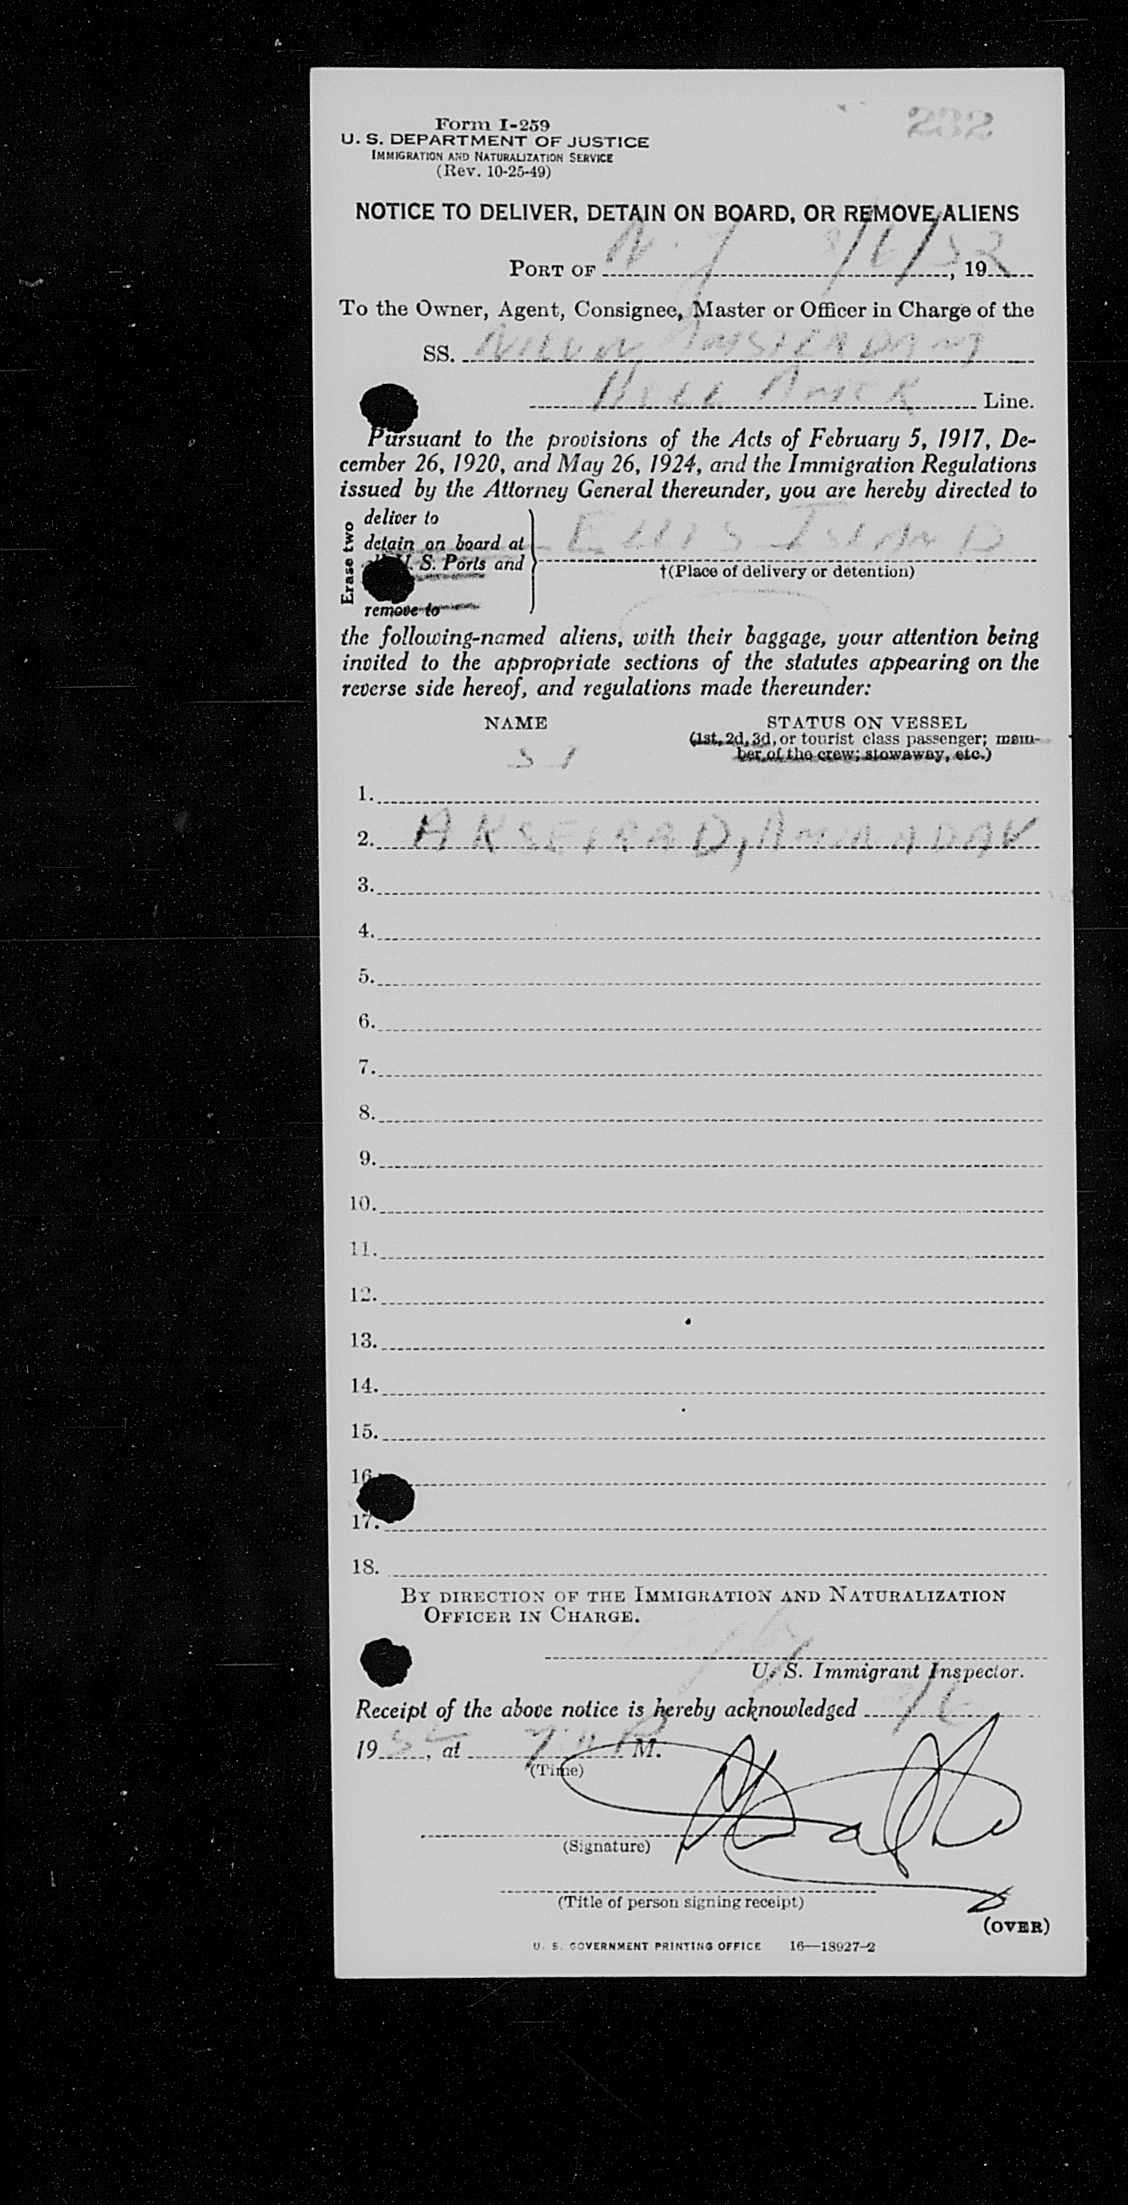 232
Form I-259
U. S. DEPARTMENT OF JUSTICE
IMMIGRATION AND NATURALIZATION SERVICE
(Rev. 10-25-49)
NOTICE TO DELIVER, DETAIN ON BOARD, OR REMOVE, ALIENS
PORT OF N. Y /6/52, 19
To the Owner, Agent, Consignee, Master or Officer in Charge of the
SS. NIEUW AMSTERDAM
HOLL AMER Line.
Pursuant to the provisions of the Acts of February 5, 1917, De-
cember 26, 1920, and May 26, 1924, and the Immigration Regulations
issued by the Attorney General thereunder, you are hereby directed to
Erase two
deliver to
detain on board at
U. S. Ports and
remove to
ELLIS ISLAND
†(Place of delivery or detention)
the following-named aliens, with their baggage, your attention being
invited to the appropriate sections of the statutes appearing on the
reverse side hereof, and regulations made thereunder:
NAME
STATUS ON VESSEL
(1st, 2d, 3d, or tourist class passenger; mem-
ber of the crew; stowaway, etc.)
1.
2. AKSELRAD, AMINADAV
3.
4.
5.
6.
7.
8.
9.
10.
11.
12.
13.
14.
15.
16.
17.
18.
BY DIRECTION OF THE IMMIGRATION AND NATURALIZATION
OFFICER IN CHARGE.
U. S. Immigrant Inspector.
Receipt of the above notice is hereby acknowledged /6
19 52, at M.
(Time)
(Signature)
(Title of person signing receipt)
(OVER)
U. S. GOVERNMENT PRINTING OFFICE 16—18927-2